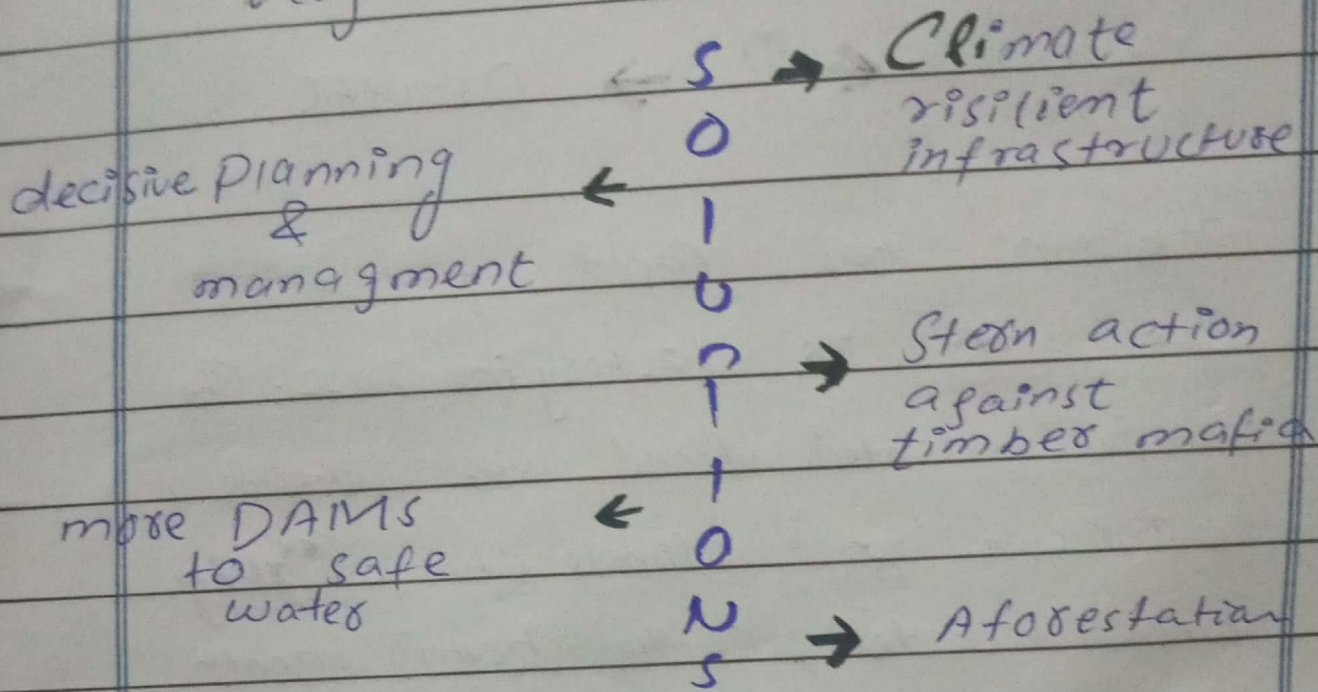 SOlUTIONS
Climate
risilient
infrastructure
decisive Planning
&
managment
Stern action
against
timber mafia
more DAMS
to safe
water
Aforestation